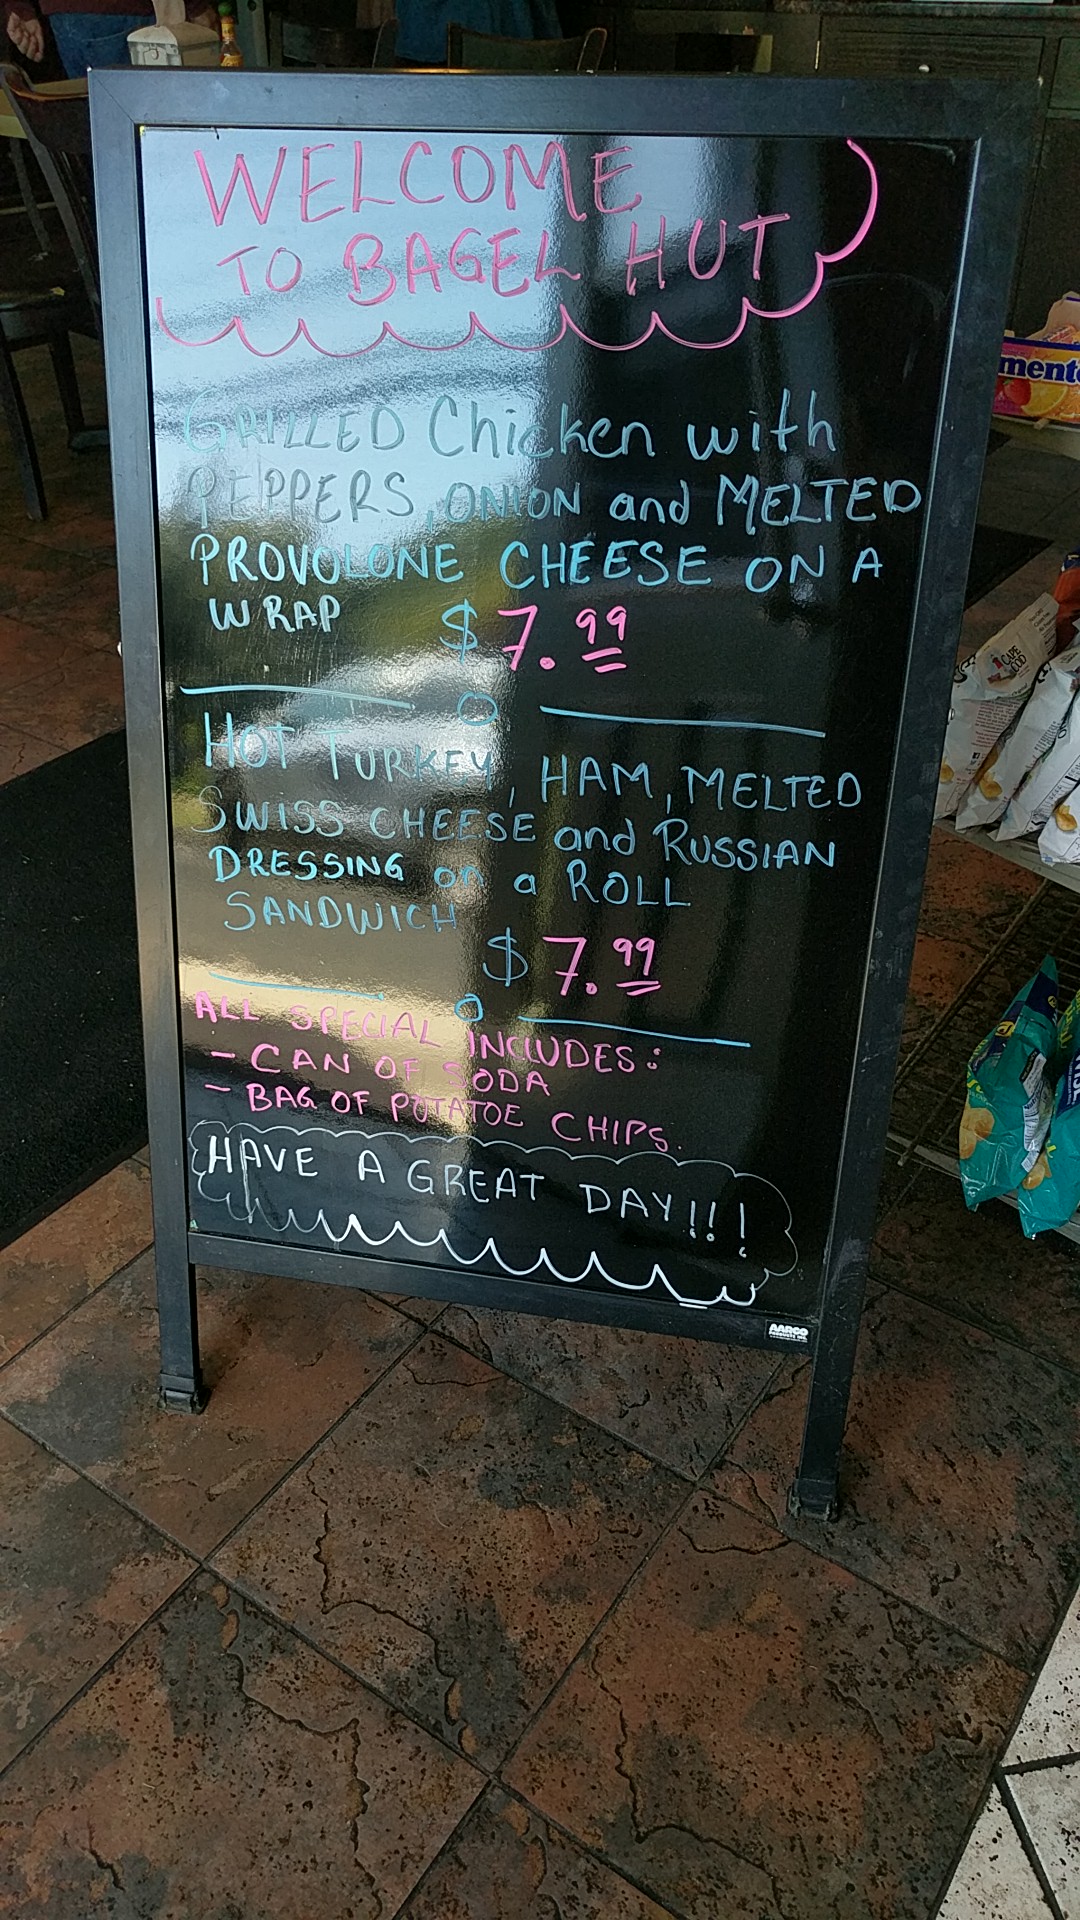 WELCOME
TO BAGEL HUT
GRILLED Chicken with
PEPPERS, ONION and MELTED
PROVOLONE CHEESE ON A
WRAP $7.99
HOT TURKEY, HAM, MELTED
SWISS CHEESE and RUSSIAN
DRESSING on a ROLL
SANDWICH
$7.99
ALL SPECIAL INCLUDES:
- CAN OF SODA
- BAG OF POTATOE CHIPS.
HAVE A GREAT DAY!!!
AARCO
PRODUCTS INC.
CAPE COD